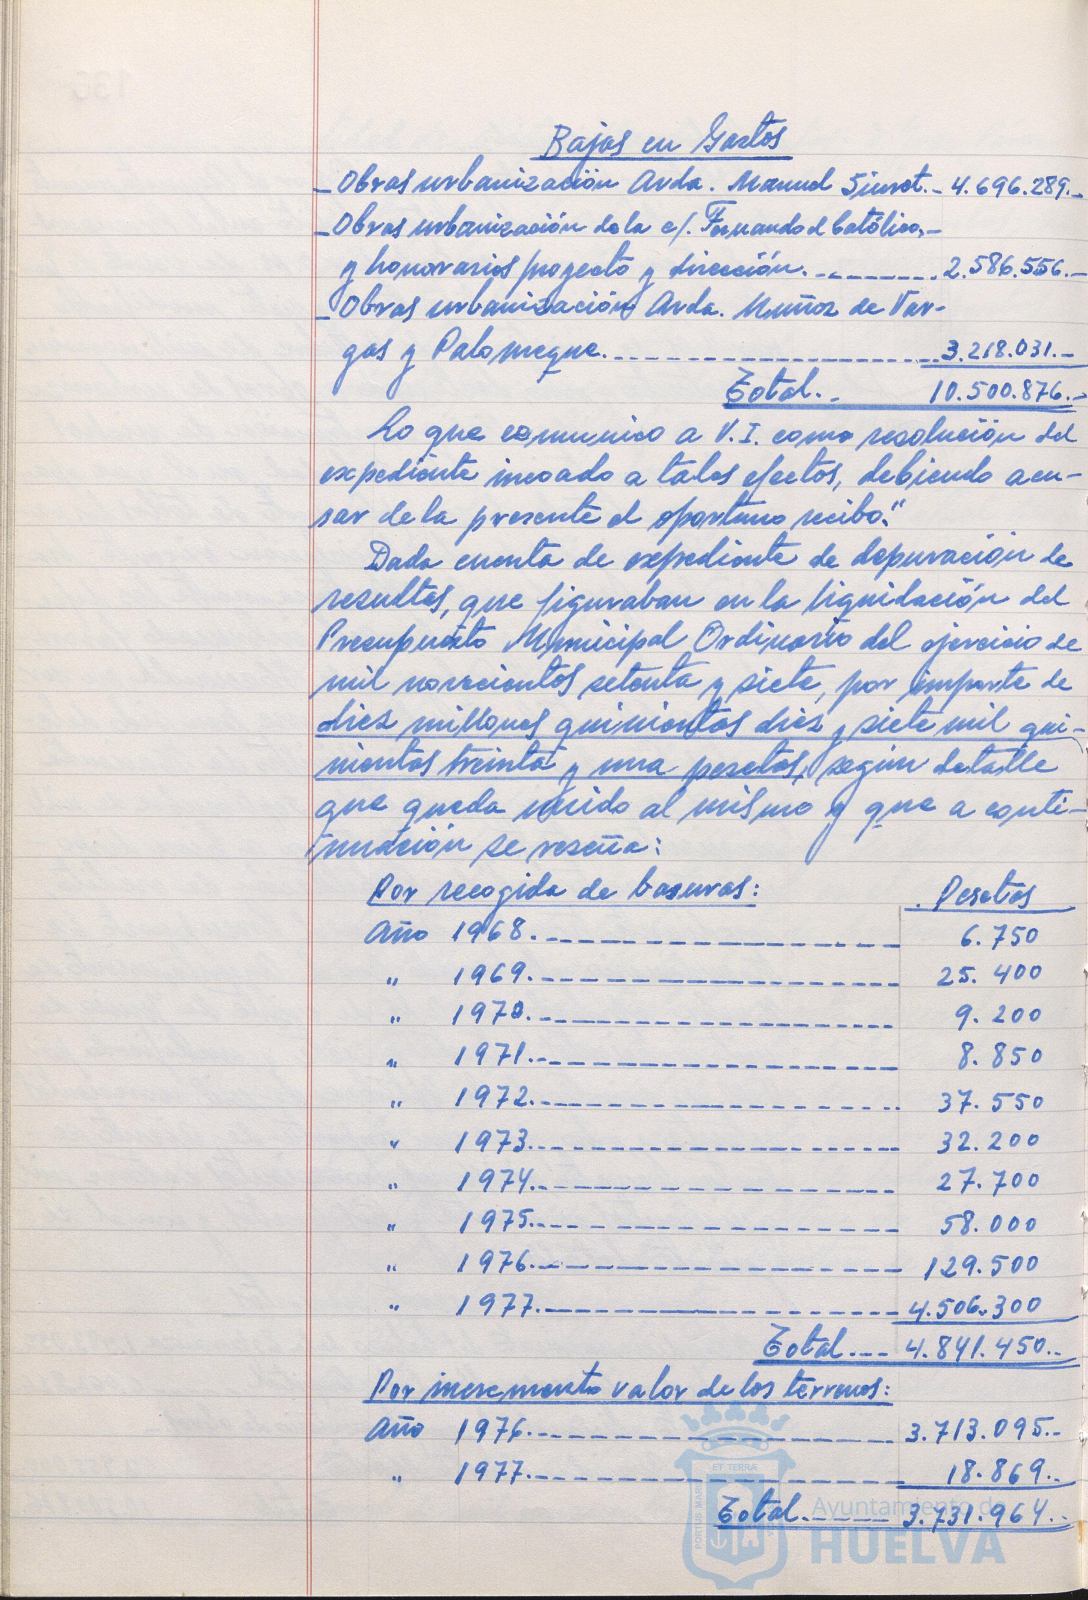 Bajas en Gastos
_Obras urbanización Avda. Manuel Siurot._ 4.696.289._
_Obras urbanización de la c/. Fernando el Católico,_
y honorarios proyecto y dirección._______2.586.556._
_Obras urbanización Avda. Muñoz de Var-
gas y Palomeque.________________3.218.031._
Total._ 10.500.876._
Lo que comunico a V.I. como resolución del
expediente incoado a tales efectos, debiendo acu-
sar de la presente el oportuno recibo."
Dada cuenta de expediente de depuración de
resultas, que figuraban en la liquidación del
Presupuesto Municipal Ordinario del ejercicio de
mil novecientos setenta y siete, por importe de
diez millones quinientos diez y siete mil qui-
nientas treinta y una pesetas, según detalle
que queda unido al mismo y que a conti-
nuación se reseña:
Por recogida de basuras: Pesetas
Año 1968.____________ 6.750
" 1969.____________ 25.400
" 1970.____________ 9.200
" 1971.____________ 8.850
" 1972.____________ 37.550
" 1973.____________ 32.200
" 1974.____________ 27.700
" 1975.____________ 58.000
" 1976.____________ 129.500
" 1977.____________ 4.506.300
Total.___ 4.841.450._
Por incremento valor de los terrenos:
Año 1976.____________ 3.713.095._
" 1977.____________ 18.869._
Total._____ 3.731.964._
PORTUS MARIS ET TERRÆ
Ayuntamiento de
HUELVA